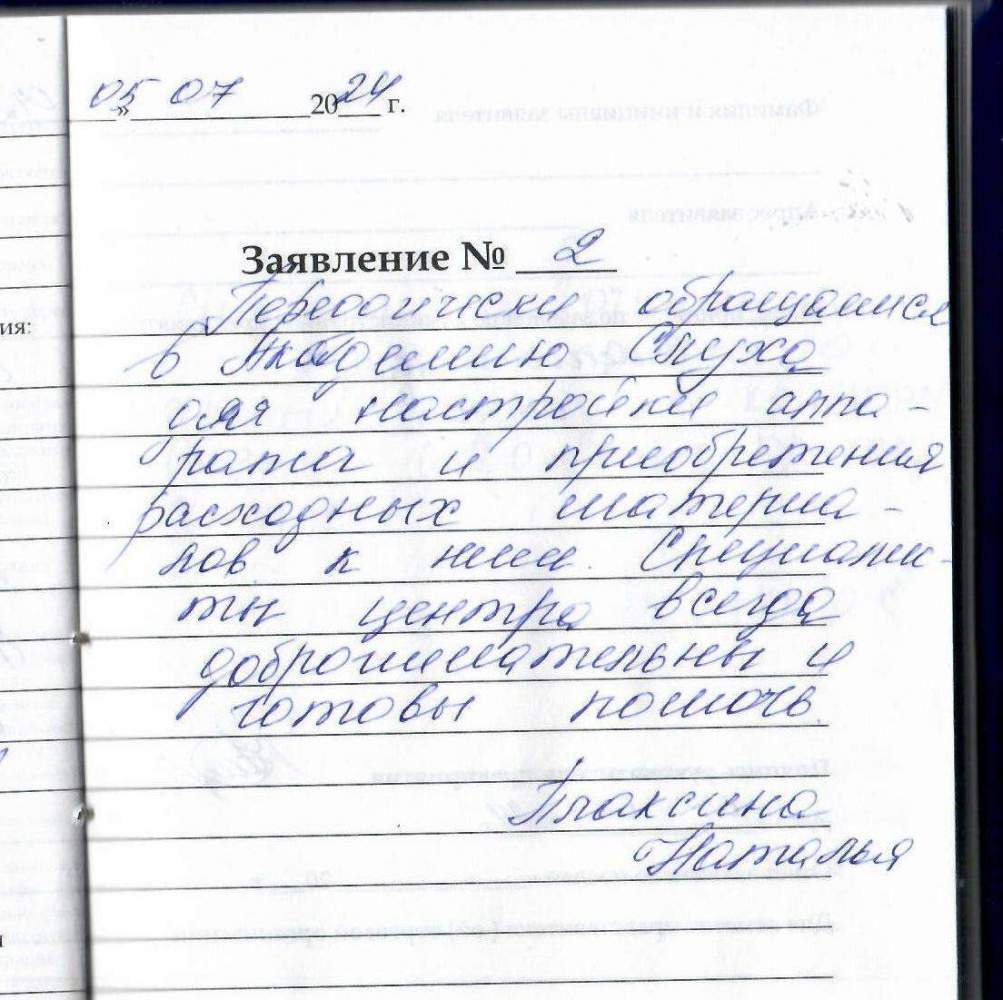 05 » 07 2024 г.
Заявление № 2
Переодически обращаемся
ия:
в Академию Слуха
для настройки аппа-
рата и приобретения
расходных материа-
лов к ним. Специалис-
ты центра всегда
доброжелательны и
готовы помочь.
Плаксина
Наталья